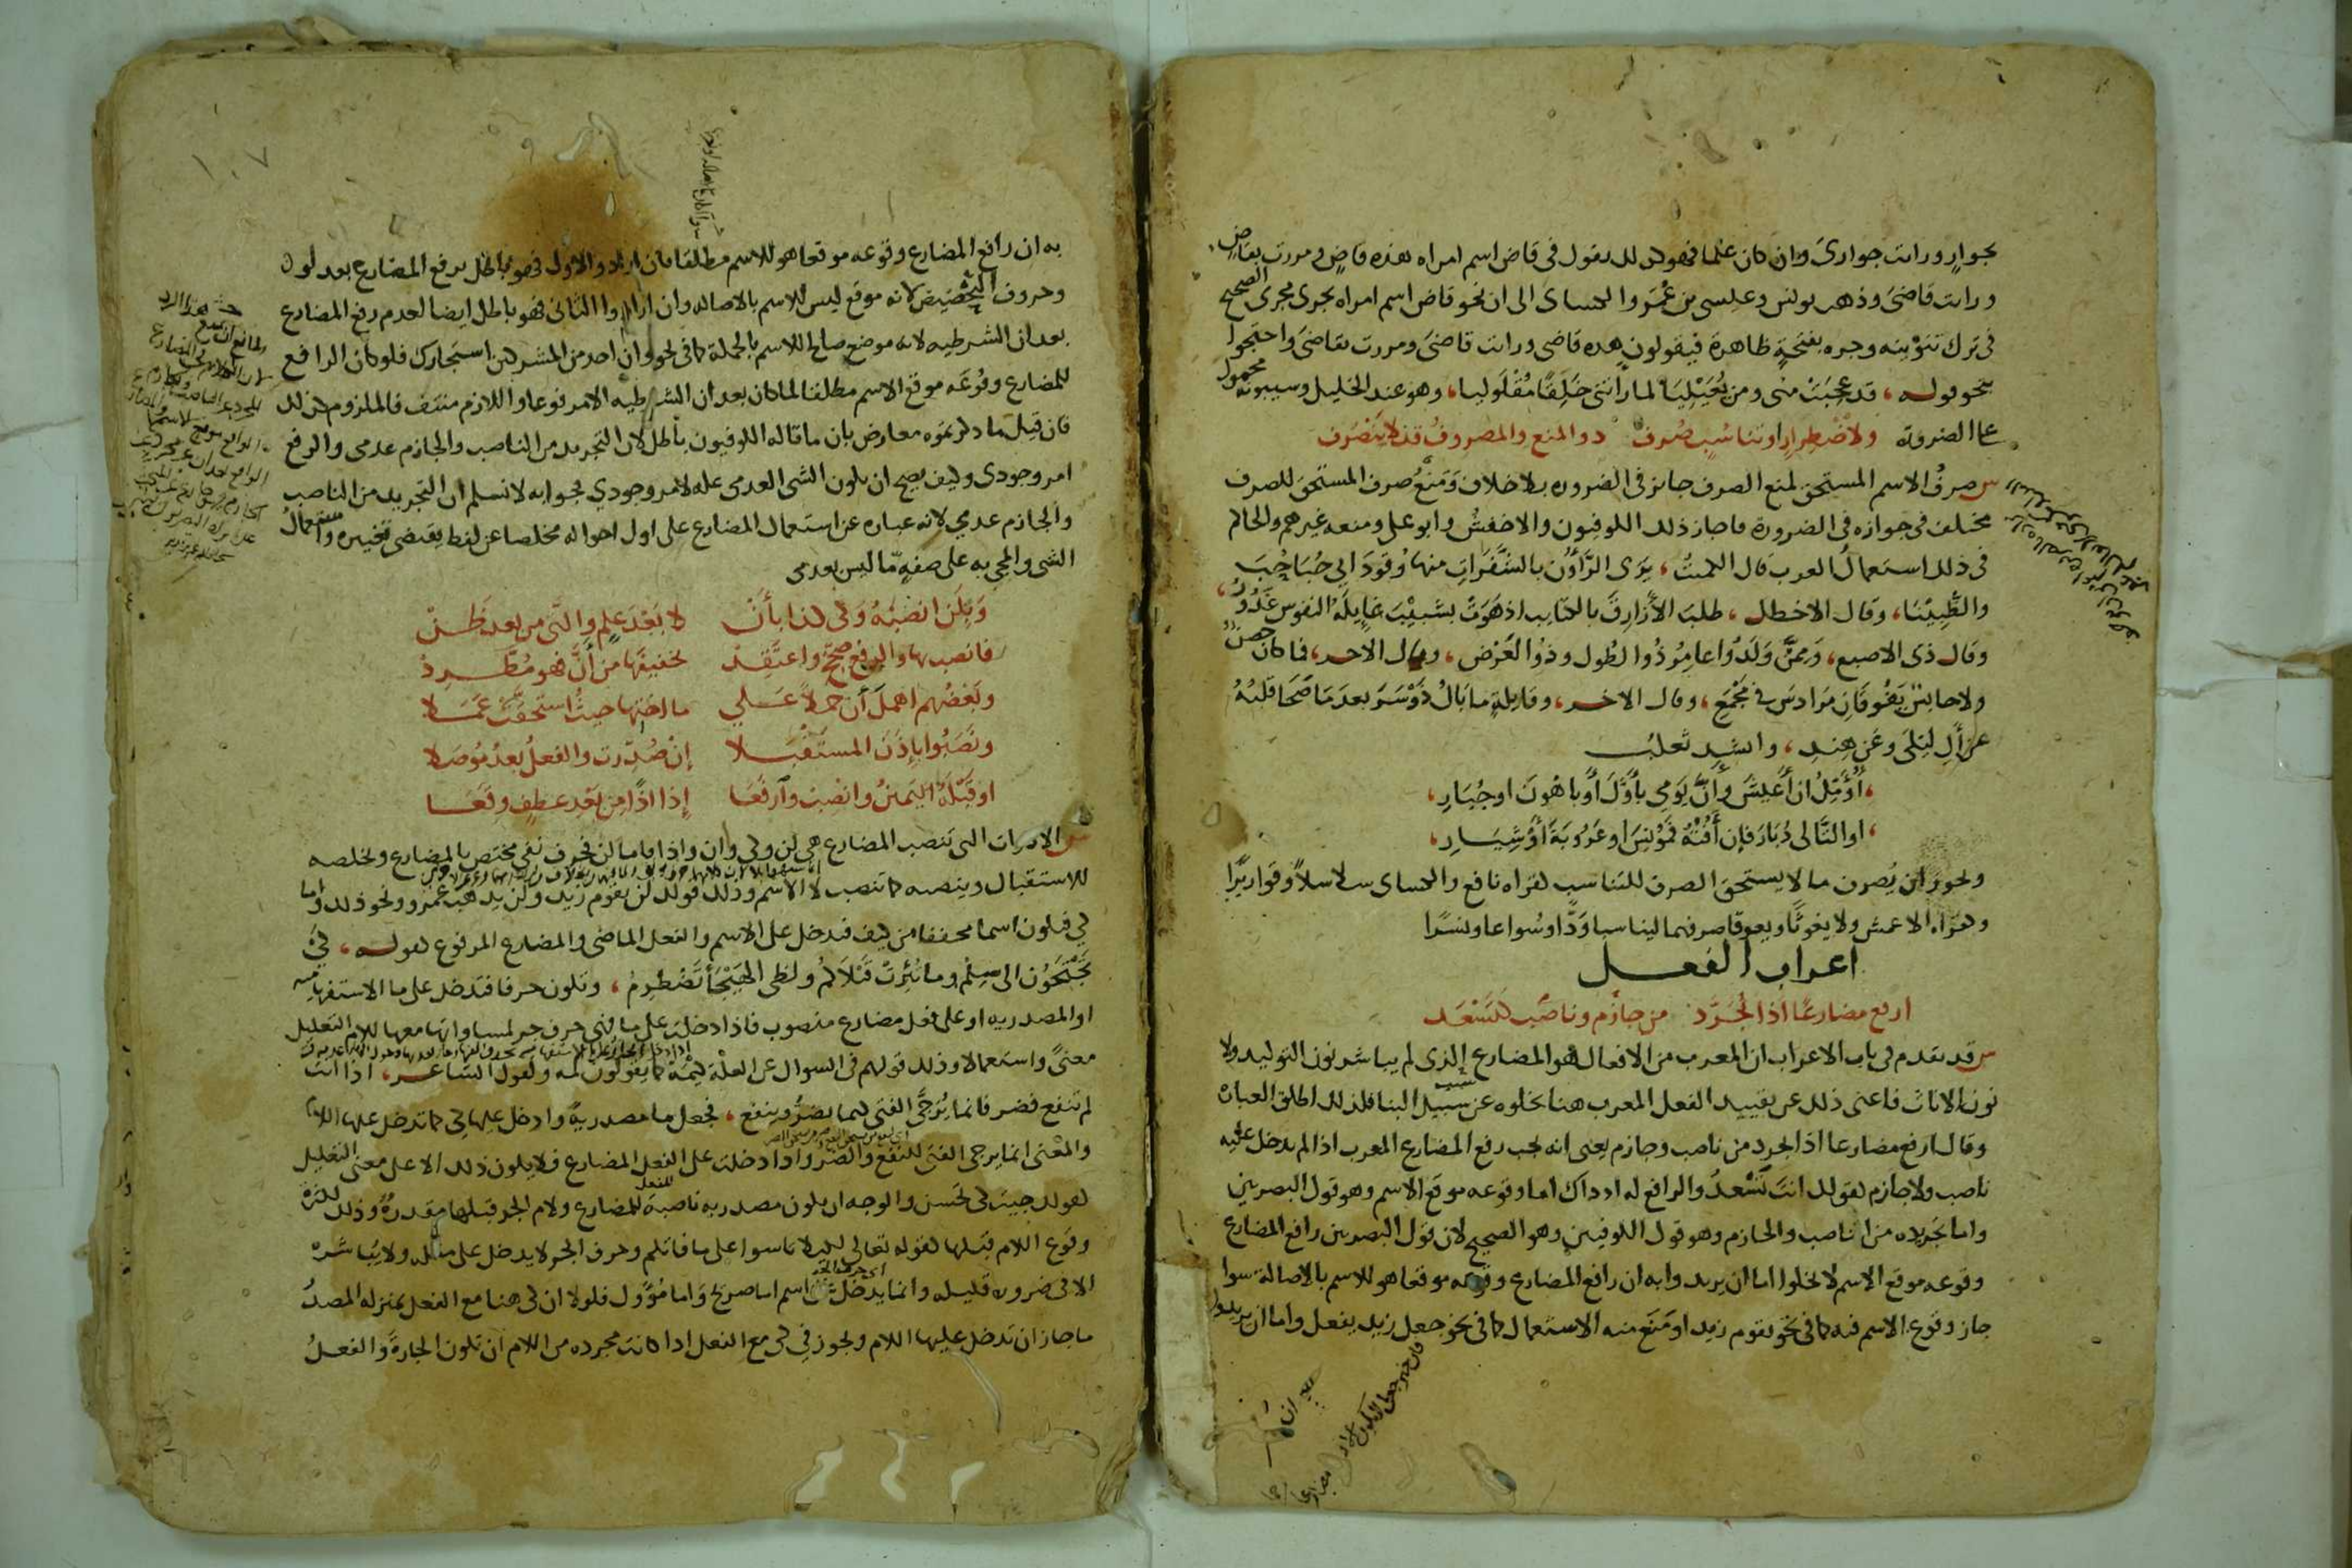 بجوارٍ ورايت جواريَ وان كان علما فهو كذلك تقول في قاض اسم امراه هذه قاضٍ ومررت بقاضٍ
ورايت قاضيَ وذهب يونس وعيسى بن عُمَر والكساى الى ان نحو قاض اسم امراه يجرى مجرى الصحيح
فى ترك تنوينه وجره بفتحةٍ ظاهرة فيقولون هذه قاضى ورايت قاضىَ ومررت بقاضىَ واحتجوا
بنحو قوله ، قد عجبَتْ منى ومن يُعَيْلِيَا لما راتنى خَلَقًا مُقْلَوليا، وهو عند الخليل وسيبويه محمول
على الضرورة ولاضْطِرارٍ او تناسُبٍ صُرفْ ذو المنع والمصروفُ قد لا يَنْصَرف
س صرفُ الاسم المستحق لمنع الصرف جائز فى الضروره بلا خلاف وَمَنْعُ صرف المستحق للصرف
مختلف فى جوازه فى الضرورة فاجاز ذلك الكوفيون والاخفشُ وابو على ومنعه غيرهم والحاكم
فى ذلك استعمالُ العرب قال الكميتُ، يَرَى الرَّاؤُن بالشَّفَراتِ منها وُقودَ ابي حُبَاحِبَ
والظُبِيْنَا، وقال الاخطل ، طلبَ الأَزَارِقَ بالكتايب اذ هَوَتْ بشَبِيْبَ غايِلَةُ النفوس غَدُورُ،
وقال ذى الاصبع، وَمِمَّنْ وَلَدُوا عامِرُ ذُوا الطُول وذُوا العَرْض ، وقال الاخر، فما كان حصنٌ
ولا حابسٌ يَفُوقانِ مِرْداسَ فى مَجْمَعِ ، وقال الاخر ، وقايلةٍ ما بَالُ دَوْسَرَ بعدَمَا صَحَا قلبُهُ
عن آلِ لَيْلَى وعَن هِندِ ، وانشد ثعلبُ
، أُؤَمِّلُ ان أَعيشَ وأَنَّ يَومى بأَوَّلَ أَو بأَهْوَنَ او جُبَارِ،
، او التَّالى دُبَارَ فإن أَفُتْهُ فمُؤْنِسَ او عَرُوبَةَ أَوْ شِيَارِ،
ويجوز ان يُصرف ما لا يستحق الصرف للتناسب لقراه نافع والكساى سلاسلاً وقواريرًا
وكقراه الاعمش ولا يغوثًا ويعوقا صرفهما ليناسبا وَدًّا وسُواعا ونَسْرًا
اعراب الفعل
ارفع مضارعًا اذا يُجَرَّدُ من جازم وناصبٍ كتَسْعَد
س قد تقدم فى باب الاعراب ان المعرب من الافعال هو المضارع الذى لم يباشر نون التوكيد ولا
نون الاناث فاغنى ذلك عن تقييد الفعل المعرب هنا بخلوه عن سبب البنا فلذلك اطلق العباره
وقال ارفع مضارعا اذا يجرد من ناصب وجازم يعنى انه يجب رفع المضارع المعرب اذا لم يدخل عليه
ناصب ولا جازم كقولك انت تَسْعدُ والرافع له اذ ذاك اما وقوعه موقع الاسم وهو قول البصريين
واما تجريده من الناصب والجازم وهو قول الكوفيين وهو الصحيح لان قول البصريين رافع المضارع
وقوعه موقع الاسم لا يخلوا اما ان يريدوا به ان رافع المضارع وقوعه موقعا هو للاسم بالاصاله سوا
جاز وقوع الاسم فيه كما فى نحو يقوم زيد او مَنَع منه الاستعمال كما فى نحو جعل زيد يفعل واما ان يريدوا
١٠٧
به ان رافع المضارع وقوعه موقعا هو للاسم مطلقا فان ارادوا الاول فهو باطل برفع المضارع بعد لو
وحروف التحضيض لانه موقع ليس للاسم بالاصاله وان ارادوا الثانى فهو باطل ايضا لعدم رفع المضارع
بعد ان الشرطيه لانه موضع صالح للاسم بالجملة كما فى نحو وان احد من المشركين استجارك فلو كان الرافع
للمضارع وقُوعَه موقع الاسم مطلقا لما كان بعد ان الشرطيه الا مرفوعا واللازم منتف فالملزوم كذلك
فان قيل ما ذكرتموه معارض بان ما قاله الكوفيون باطل لان التجريد من الناصب والجازم عدمى والرفع
امر وجودى وكيف يصح ان يكون الشى العدمى عله لامر وجودي فجوابه لا نسلم ان التجريد من الناصب
والجازم عدمي لانه عباره عن استعمال المضارع على اول احواله مخلصا عن لفظ يقتضى تغييره واستعمالُ
الشى والمجى به على صفةٍ مّا ليس بعدمى
وَبِلَن انصِبْهُ وَكى كذا بأَنْ لا بَعْدَ عِلمٍ والتّى من بعد ظَنْ
فانصب بها والرفعَ صحِّح واعتَقِدْ تخفيفَها من أَنَّ فهو مُطَّرِدْ
وبَعْضُهم اهمَلَ أَنْ حملاً عَلى ما اختِها حيثُ استَحقَّتْ عَمَلا
ونَصَبُوا بإِذَن المستقْبَلا إِنْ صُدِّرت والفعلُ بعدُ مُوصَلا
او قَبْلَهُ اليَمينُ وانصِبْ وارفَعَا إِذا اذًا مِن بَعْدِ عطفٍ وقَعَا
س الادوات التى تنصب المضارع هى لن وكي وان واذا فاما لن فحرف نفى مختص بالمضارع ويخلصه
للاستقبال وينصبه كما تنصب لا الاسم وذلك قولك لن يقوم زيد ولن يذهب عَمرو ونحو ذلك واما
كي فتكون اسما مخففا من كيف فتدخل على الاسم والفعل الماضى والمضارع المرفوع كقوله ، كَيْ
تَجْنَحُون الى سِلْمٍ وما ثُئِرَتْ قَتْلاكُمُ ولَظَى الهَيْجَأ تَضْطَرِمُ ، وتكون حرفا فتدخل على ما الاستفهاميه
او المصدريه او على فعل مضارع منصوب فاذا دخلت على ما فهى حرف جر لمساواتها معها للام التعليل
معنًى واستعمالا وذلك قولهم فى السوال عن العلة كيْمَهْ كما يقولون لمه وكقول الشاعر، اذا انت
لم تنفع فضر فانما يُرَجَّى الفتى كيما يضرُّ وينفع ، فجعل ما مصدريةً وادخل عليها كى كما تدخل عليها اللام
والمعْنى انما يرجى الفتى للنفع والضر واذا دخلت على الفعل المضارع فلا يكون ذلك الا على معنى التعليل
كقولك جيت كى تحسن والوجه ان يكون مصدريه ناصبةً للمضارع ولام الجر قبلها مقدرةً وذلك لكثرة
وقوع اللام قبلها كقوله تعالى لكيلا تاسوا على ما فاتكم وحرف الجر لا يدخل على مثله ولا يُباشره
الا فى ضروره قليله وانما يدخل على اسم اما صريح وَاما مُؤَول فلولا ان كى هنا مع الفعل بمنزله المصدر
ما جاز ان تدخل عليها اللام ويجوز فى كى مع الفعل اذا كانت مجرده من اللام ان تكون الجارةَ والفعلُ